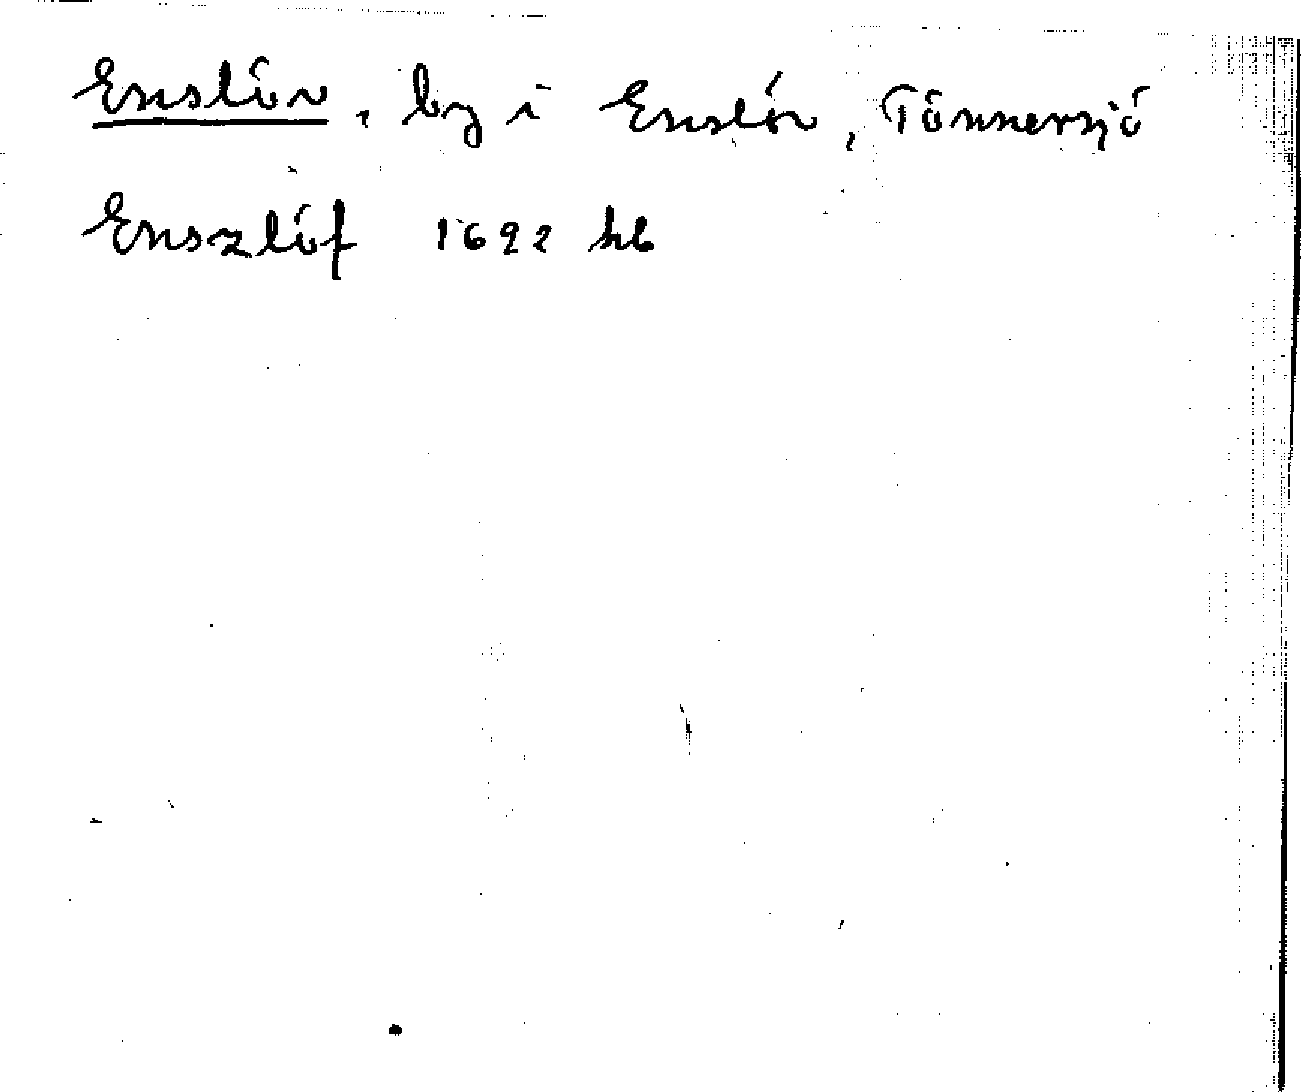 Enslöv, by i Enslöv, Tönnersjö
Enszlöf 1692 hb